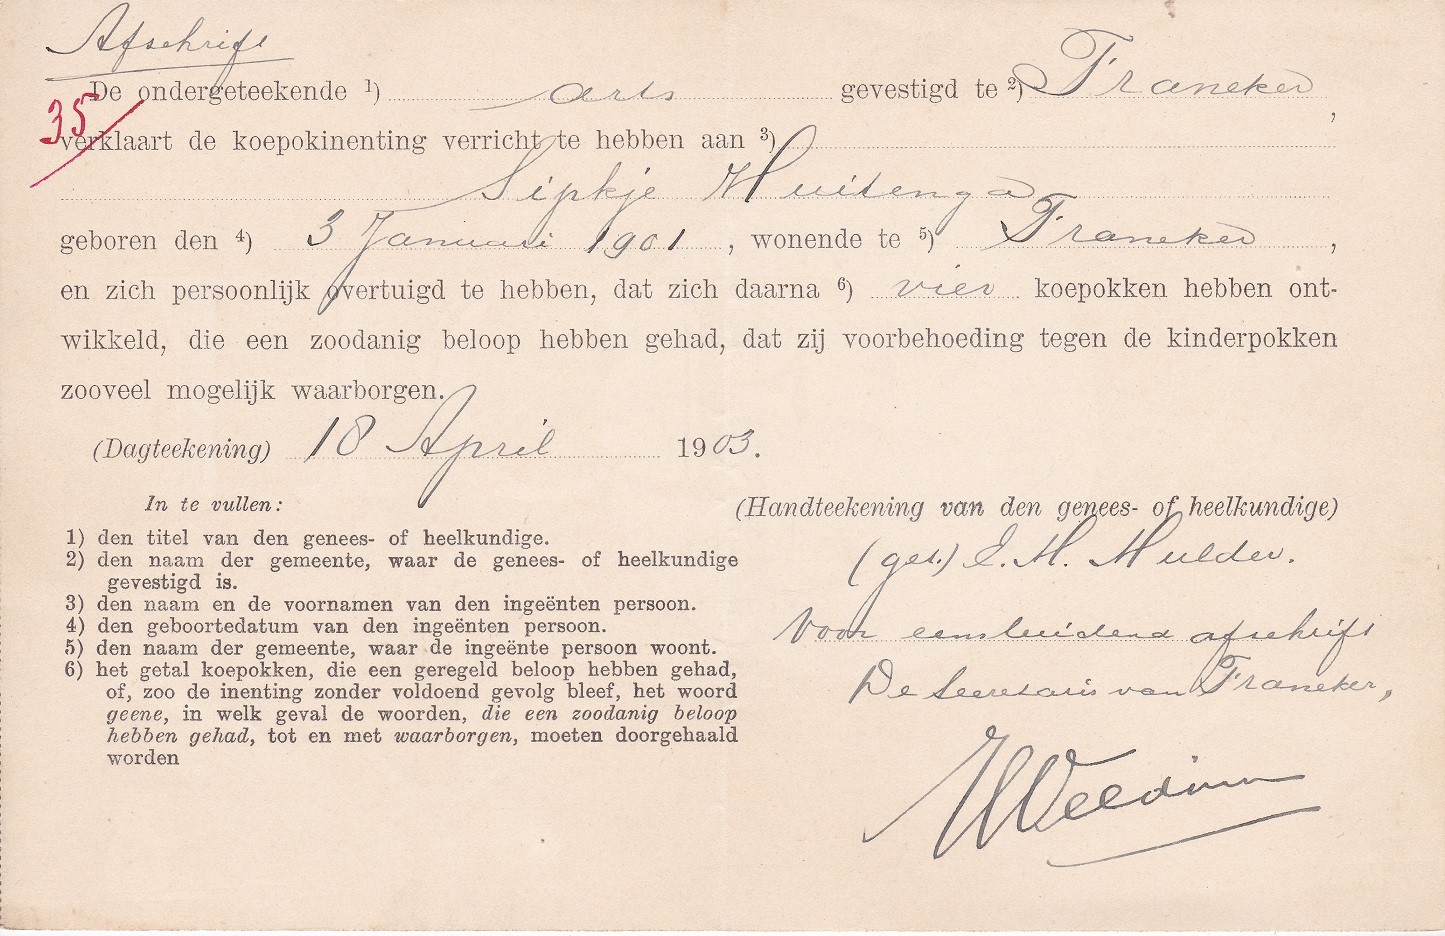 Afschrift
De ondergeteekende 1) arts gevestigd te 2) Franeker,
35
verklaart de koepokinenting verricht te hebben aan 3)
Sipkje Huitenga
geboren den 4) 3 Januari 1901, wonende te 5) Franeker,
en zich persoonlijk overtuigd te hebben, dat zich daarna 6) vier koepokken hebben ont-
wikkeld, die een zoodanig beloop hebben gehad, dat zij voorbehoeding tegen de kinderpokken
zooveel mogelijk waarborgen.
(Dagteekening) 18 April 1903.
In te vullen:
1) den titel van den genees- of heelkundige.
2) den naam der gemeente, waar de genees- of heelkundige
gevestigd is.
3) den naam en de voornamen van den ingeënten persoon.
4) den geboortedatum van den ingeënten persoon.
5) den naam der gemeente, waar de ingeënte persoon woont.
6) het getal koepokken, die een geregeld beloop hebben gehad,
of, zoo de inenting zonder voldoend gevolg bleef, het woord
geene, in welk geval de woorden, die een zoodanig beloop
hebben gehad, tot en met waarborgen, moeten doorgehaald
worden
(Handteekening van den genees- of heelkundige)
(get.) E. H. Mulder.
Voor eensluidend afschrift
De Secretaris van Franeker,